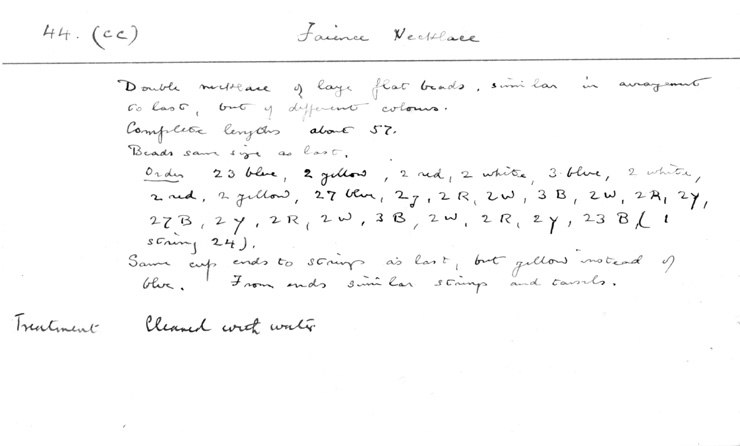 44. (cc) Faience Necklace
Double necklace of large flat beads, similar in arrangement
to last, but of different colours.
Complete lengths about 57.
Beads same size as last.
Order 23 blue, 2 yellow, 2 red, 2 white, 3 blue, 2 white,
2 red, 2 yellow, 27 blue, 2y, 2R, 2W, 3B, 2W, 2R, 2y,
27B, 2y, 2R, 2W, 3B, 2W, 2R, 2y, 23B, (1
string 24).
Same cup ends to strings as last, but yellow instead of
blue. From ends similar strings and tassels.
Treatment Cleaned with water